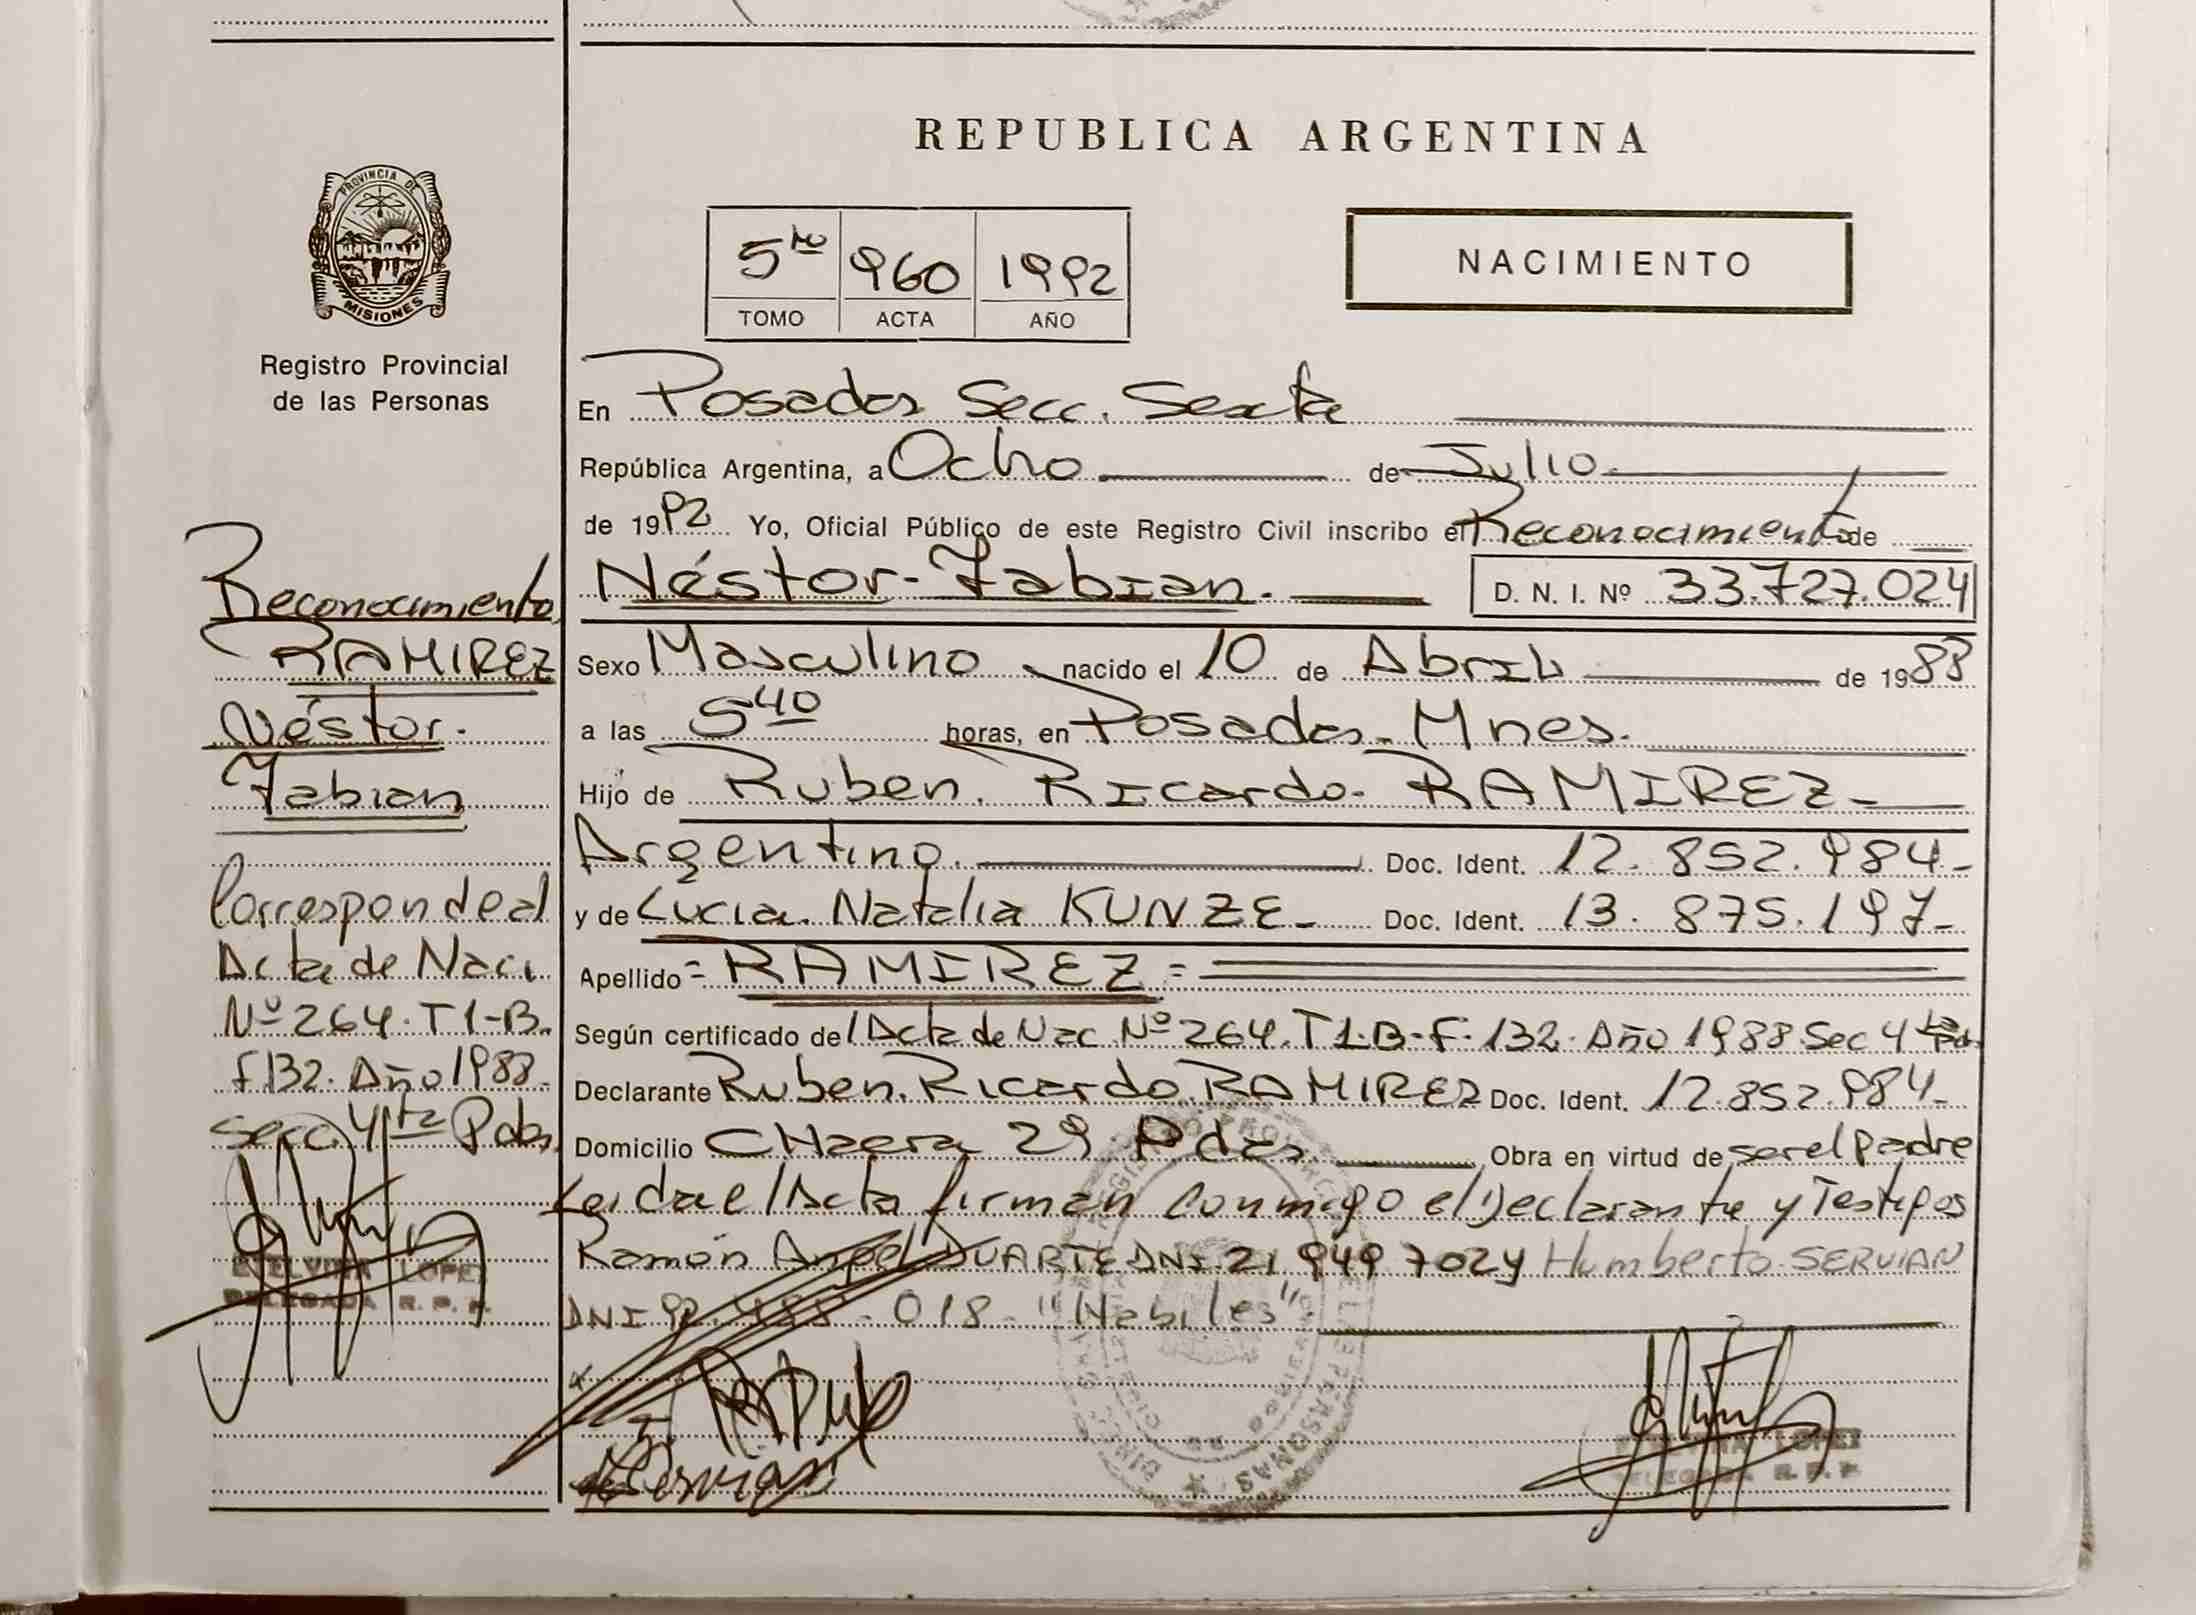 PROVINCIA DE
MISIONES
Registro Provincial
de las Personas
Reconocimiento
RAMIREZ
Néstor.
Fabian
Corresponde al
Acta de Naci
Nº 264. T1-B.
F132. Año 1988.
Secc. 4ta Pdas.
ETELVINA LOPEZ
DELEGADA R. P. P.
REPUBLICA ARGENTINA
5to 960 1992
TOMO ACTA AÑO
NACIMIENTO
En Posadas Secc. Sexta
República Argentina, a Ocho de Julio
de 1992 Yo, Oficial Público de este Registro Civil inscribo el Reconocimiento de
Néstor-Fabian. D. N. I. Nº 33.727.024
Sexo Masculino nacido el 10 de Abril de 1988
a las 5 40 horas, en Posadas. Mnes.
Hijo de Ruben. Ricardo. RAMIREZ-
Argentino. Doc. Ident. 12.852.984-
y de Lucia. Natalia KUNZE- Doc. Ident. 13.875.197-
Apellido = RAMIREZ =
Según certificado de l Acta de Nac Nº 264. T1-B-F-132. Año 1988 Sec 4ta Pdas
Declarante Ruben. Ricardo. RAMIREZ Doc. Ident. 12.852.984-
Domicilio CHacra 29 Pdas Obra en virtud de ser el padre
Leida el Acta firman conmigo el Declarante y Testigos
Ramón Angel DUARTE DNI 21 949 702 y Humberto SERVIAN
DNI 018- "Habiles".
ETELVINA LOPEZ
DELEGADA R. P. P.